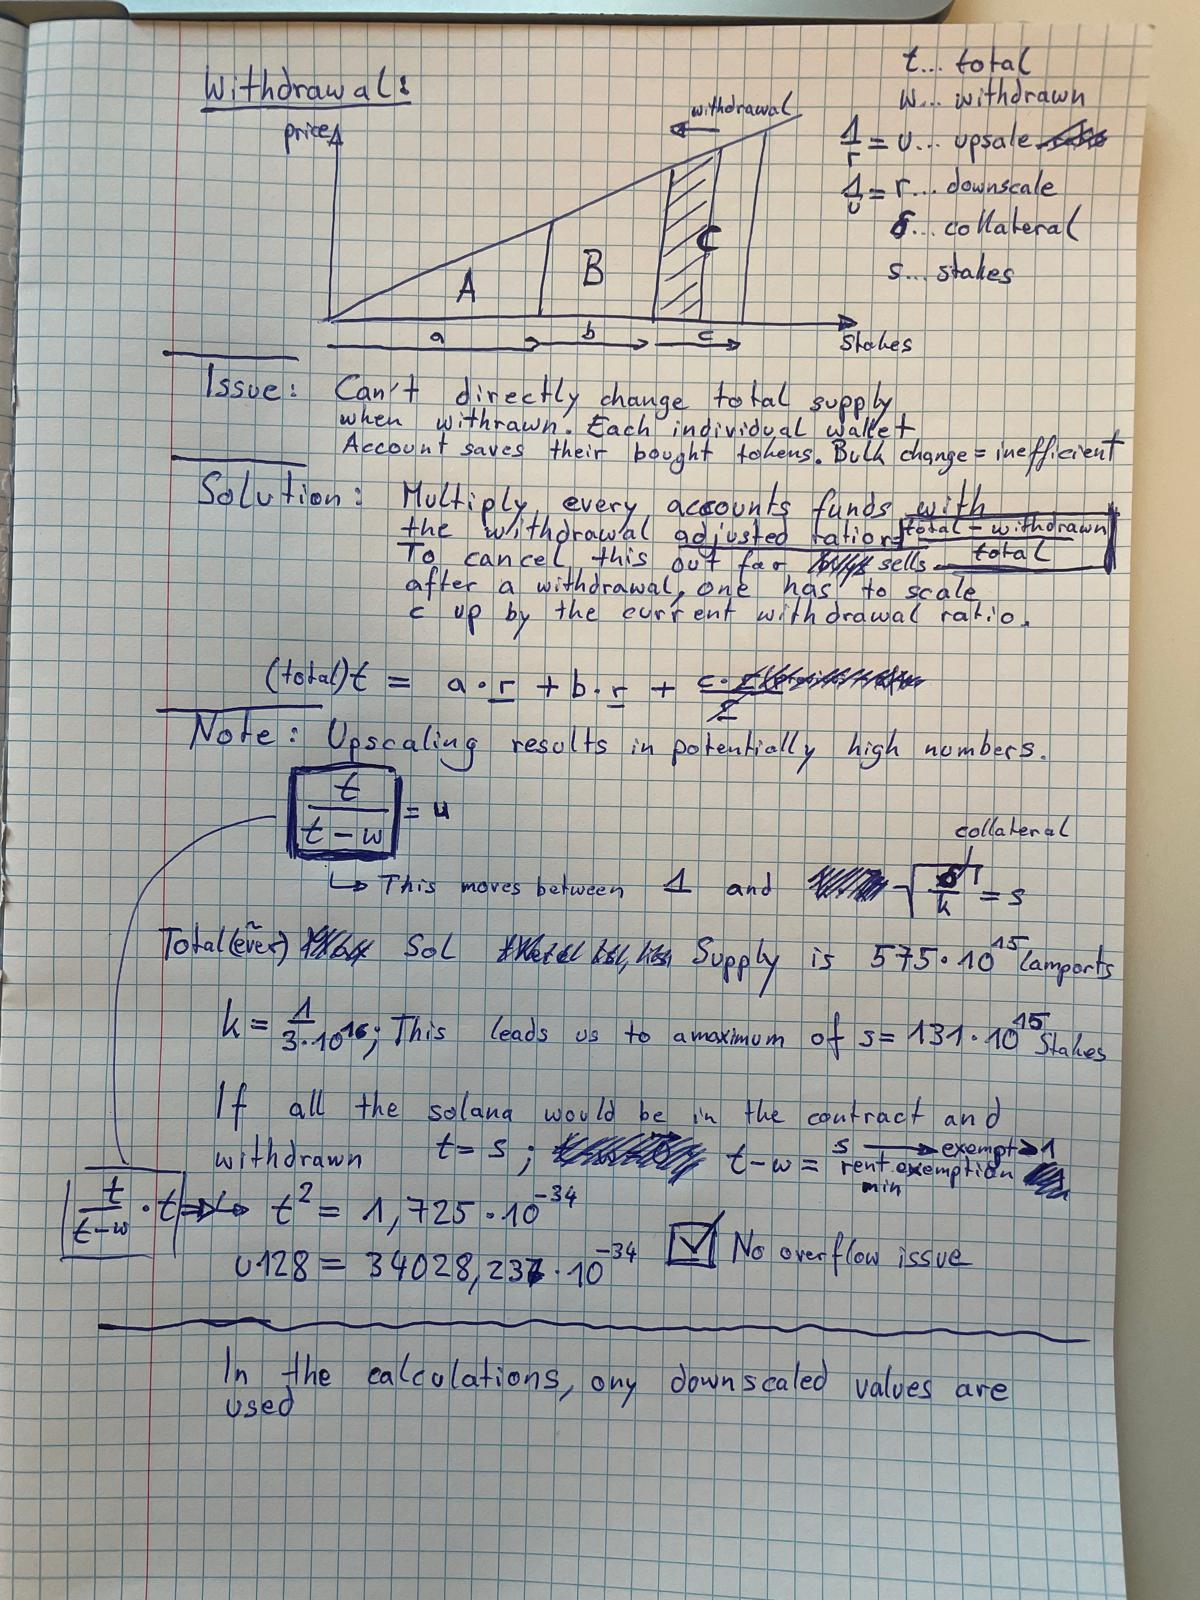 Withdrawal:
t... total
w... withdrawn
1/r = u... upsale
1/u = r... downscale
δ... collateral
s... stakes
price
withdrawal
A
B
C
a
b
c
Stakes
Issue: Can't directly change total supply
when withrawn. Each individual wallet
Account saves their bought tokens. Bulk change = inefficient
Solution: Multiply every accounts funds with
the withdrawal adjusted ratio = total - withdrawn / total
To cancel this out for sells
after a withdrawal, one has to scale
c up by the current withdrawal ratio.
(total) t = a · r + b · r + c · r / r
Note: Upscaling results in potentially high numbers.
t / t - w = u
collateral
↳ This moves between 1 and √(δ/k) = s
Total (ever) Sol Supply is 575 · 10^15 lamports
k = 1 / 3 · 10^16; This leads us to a maximum of s = 131 · 10^15 Stakes
If all the solana would be in the contract and
withdrawn t = s; t - w = s → exempt > 1
rent exemption
min
t / t - w · t => ↳ t^2 = 1,725 · 10^-34
u128 = 34028,237 · 10^-34 ☑ No overflow issue
In the calculations, ony downscaled values are
used